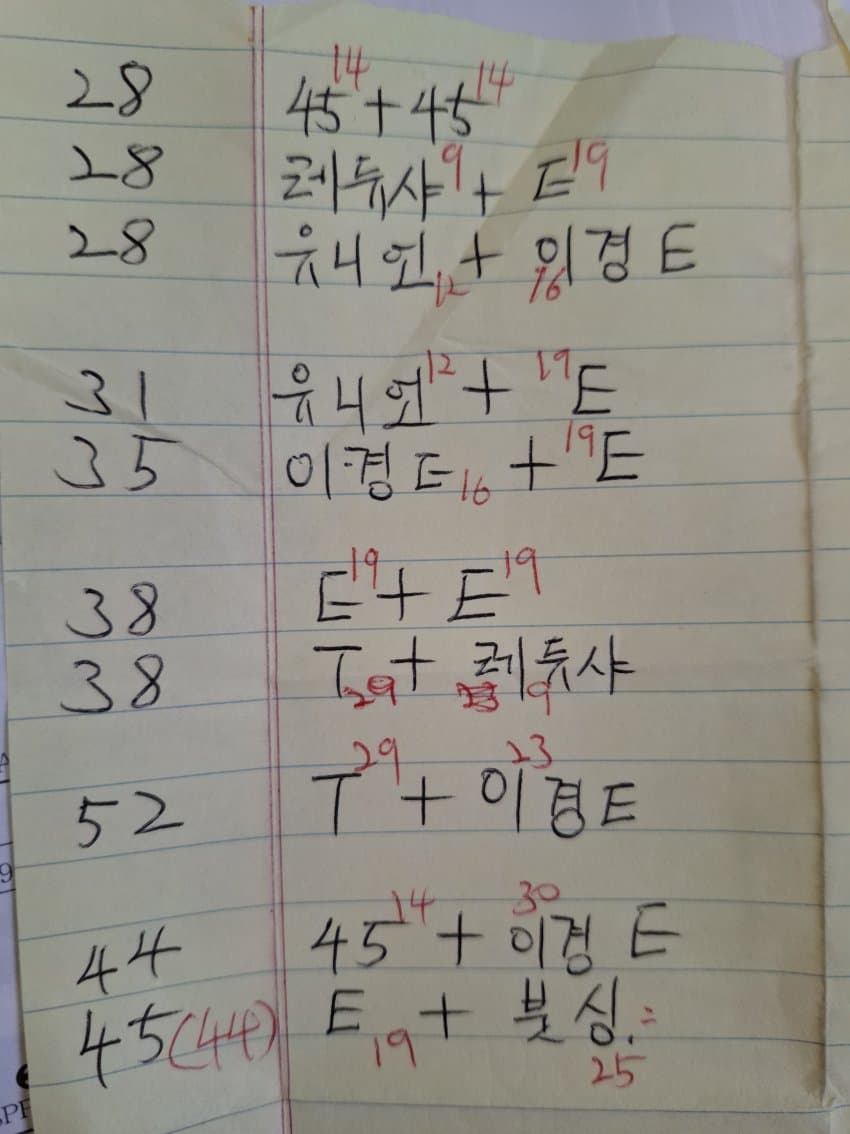 28 45 14 + 45 14
28 레듀샤 9 + E 19
28 유니언 12 + 이경 E 16
31 유니언 12 + 19 E
35 이경 E 16 + 19 E
38 E 19 + E 19
38 T 29 + 레듀샤 9
52 T 29 + 이경 E 23
44 45 14 + 30 이경 E
45 (44) E 19 + 붓싱. = 25